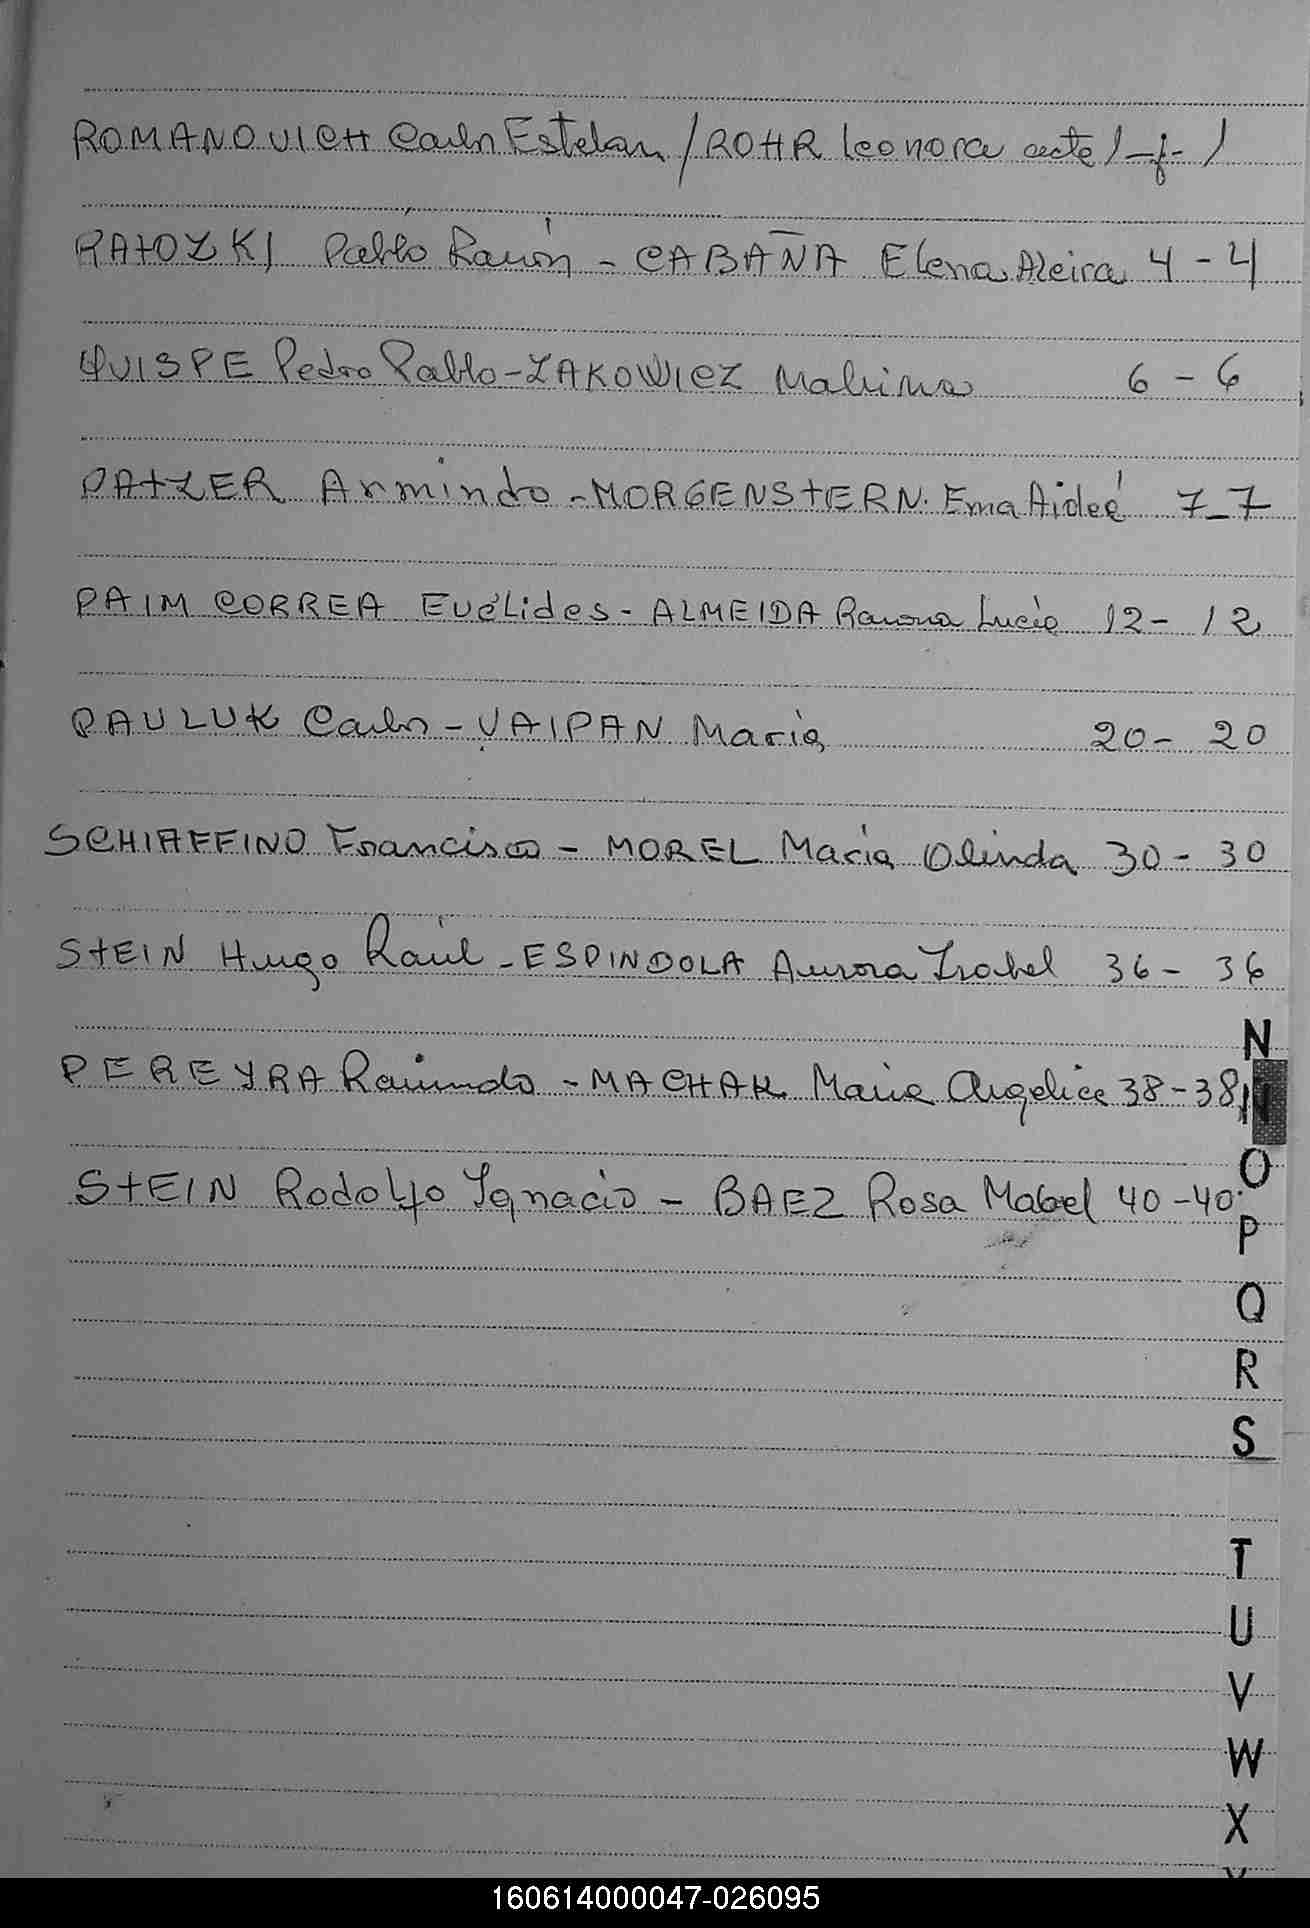 ROMANOVICH Carlos Esteban / ROHR Leonora acta 1 - f - 1
RATOZKI Pablo Ramón - CABAÑA Elena Alcira 4 - 4
QUISPE Pedro Pablo - ZAKOWICZ Malvina 6 - 6
PATZER Armindo - MORGENSTERN Ema Aideé 7 - 7
PAIM CORREA Euclides - ALMEIDA Ramona Lucia 12 - 12
PAULUK Carlos - VAIPAN Maria 20 - 20
SCHIAFFINO Francisco - MOREL Maria Olinda 30 - 30
STEIN Hugo Raúl - ESPINDOLA Aurora Isabel 36 - 36
N
PEREYRA Raimundo - MACHAK Maria Angelica 38 - 38
N
O
STEIN Rodolfo Ignacio - BAEZ Rosa Mabel 40 - 40
P
Q
R
S
T
U
V
W
X
160614000047-026095